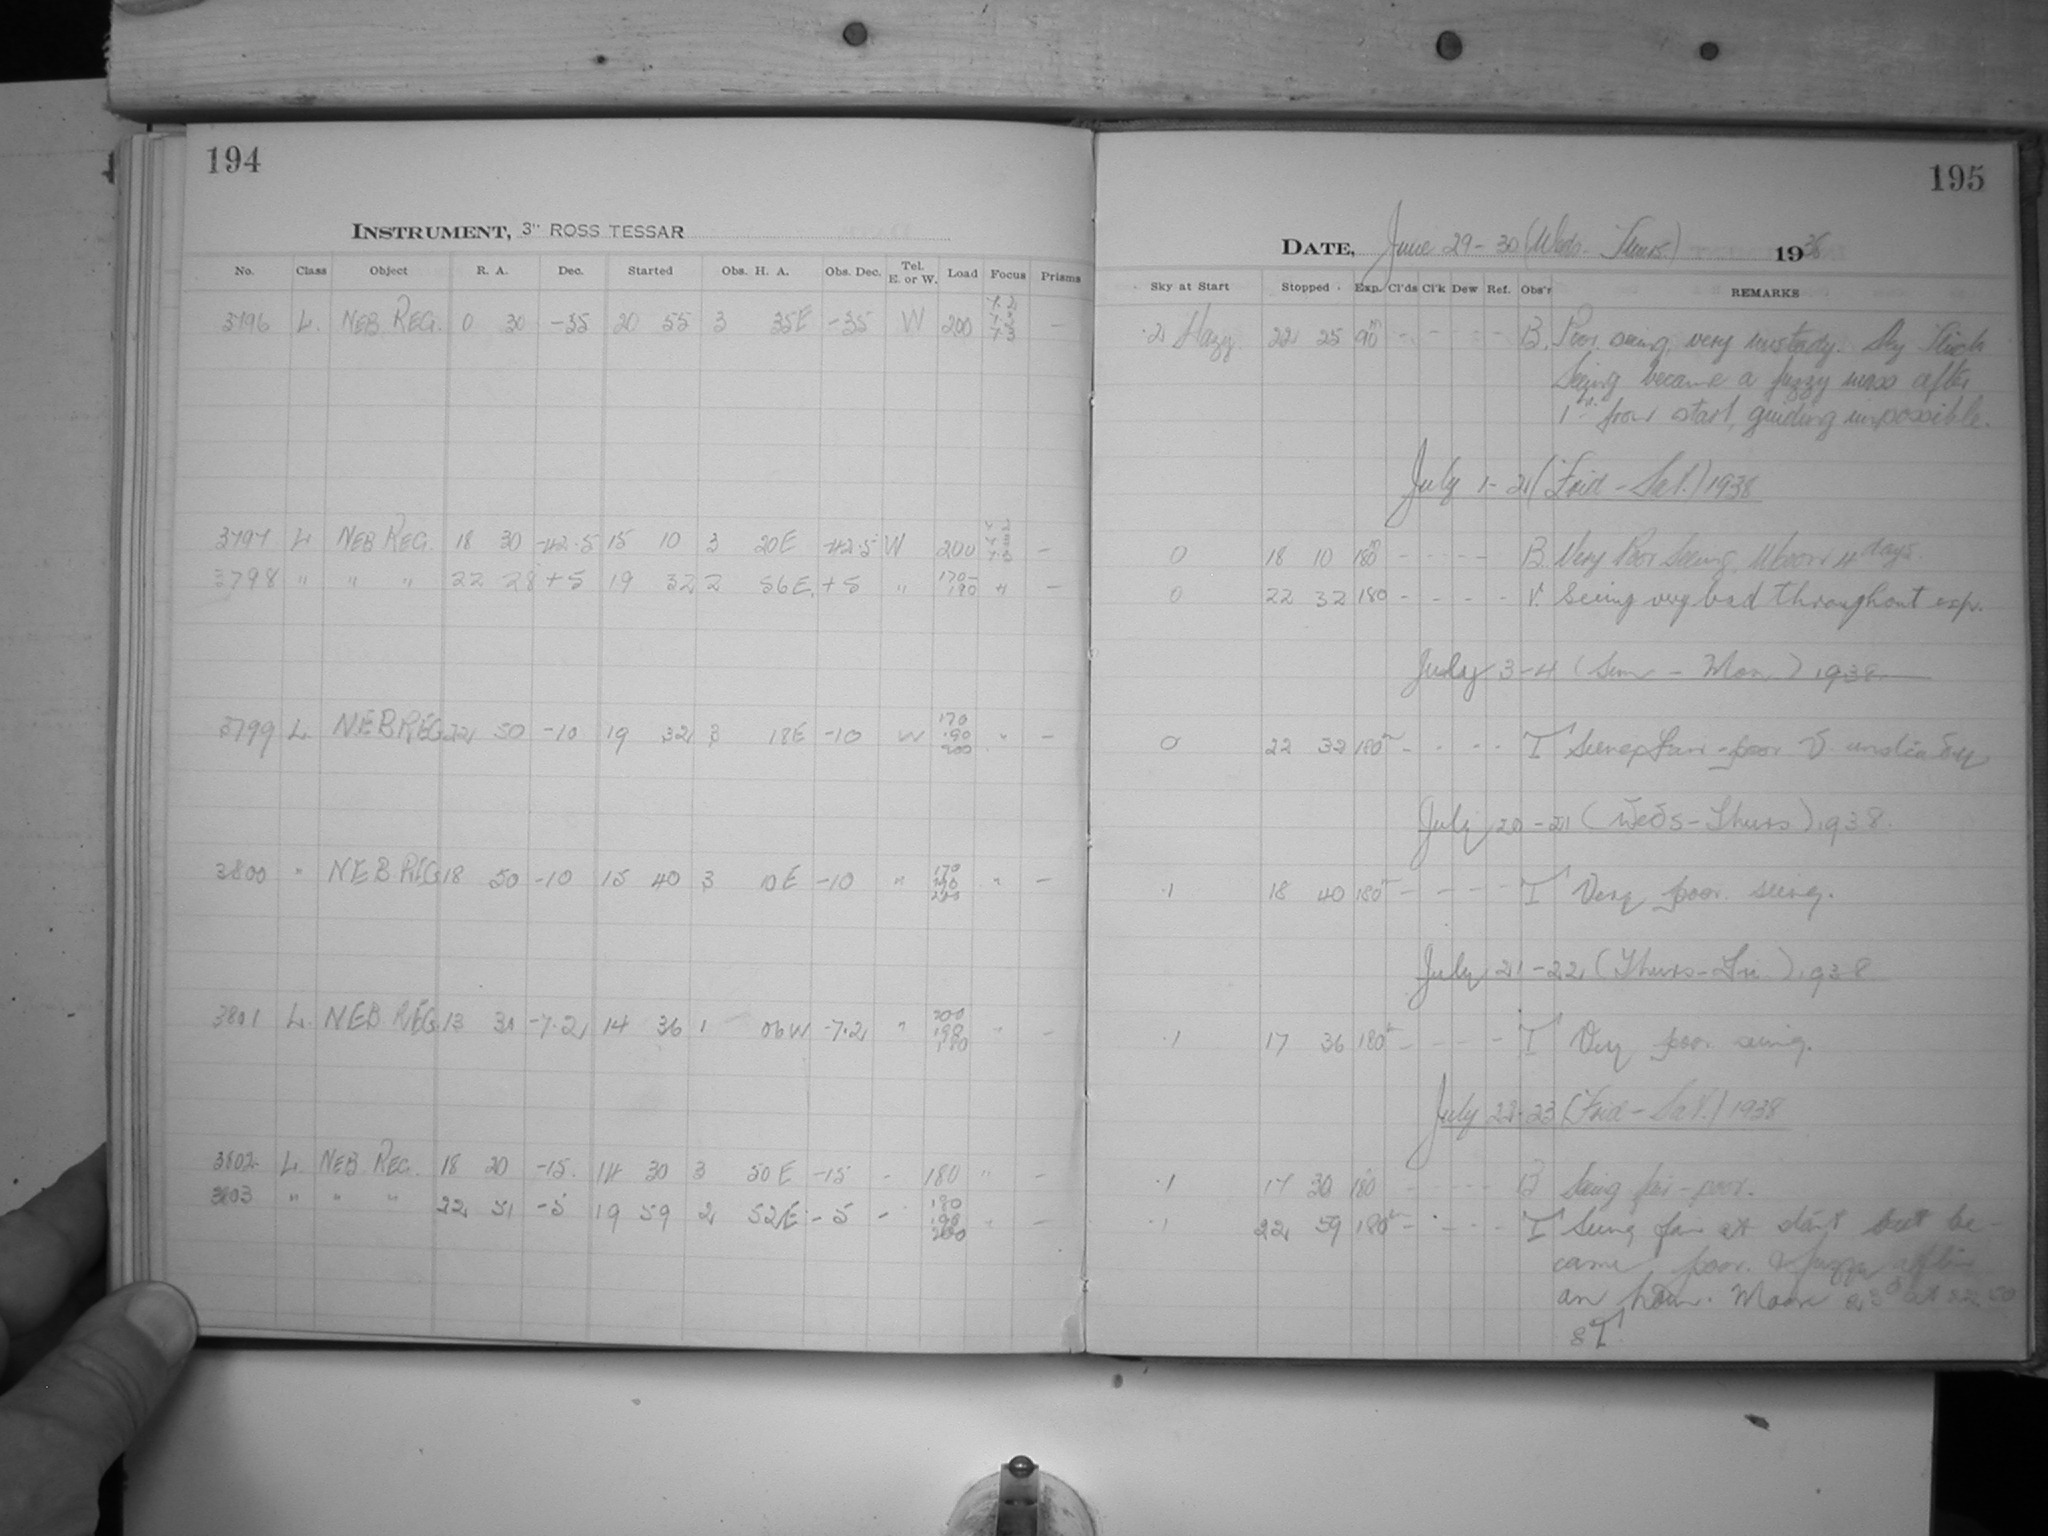 194
INSTRUMENT, 3" ROSS TESSAR
No. Class Object R. A. Dec. Started Obs. H. A. Obs. Dec. Tel. E. or W. Load Focus Prisms
3796 L. NEB REG. 0 30 -35 20 55 3 35E -35 W 200 –
3797 L NEB REG. 18 30 -42.5 15 10 3 20E -42.5 W 200 –
3798 " " " 22 28 +5 19 32 2 56E. +5 " 170- 190 " –
3799 L NEB REG 22 50 -10 19 32 3 18E -10 W 170 190 200 " –
3800 " NEB REG 18 50 -10 15 40 3 10E -10 " 170 190 200 " –
3801 L. NEB REG 13 30 -7.2 14 36 1 06W -7.2 " 200 190 180 " –
3802 L NEB REG. 18 20 -15. 14 30 3 50E -15 - 180 " –
3803 " " " 22 51 -5 19 59 2 52E -5 - 180 190 200 " –
195
DATE, June 29-30 (Weds - Thurs) 1938
Sky at Start Stopped Exp. Cl'ds Cl'k Dew Ref. Obs'r REMARKS
.2 Hazy. 22 25 90m - - - - B. Poor seeing, very unsteady. Sky thick
Seeing became a fuzzy mass after
1hr from start, guiding impossible.
July 1-2 (Frid - Sat.) 1938
0 18 10 180m - - - - B. Very Poor Seeing. Moon 4 days.
0 22 32 180 - - - - V. Seeing very bad throughout exp.
July 3-4 (Sun - Mon.) 1938
0 22 32 180m - - - - T Seeing fair - poor
July 20-21 (Weds - Thurs) 1938.
.1 18 40 180m - - - - T Very poor seeing.
July 21-22 (Thurs - Fri.) 1938
.1 17 36 180m - - - - T Very poor seeing.
July 22-23 (Frid - Sat.) 1938
.1 17 30 180 - - - - B Seeing fair - poor.
.1 22 59 180m - - - - T Seeing fair at start but be-
came poor & fuzzy after
an hour. Moon